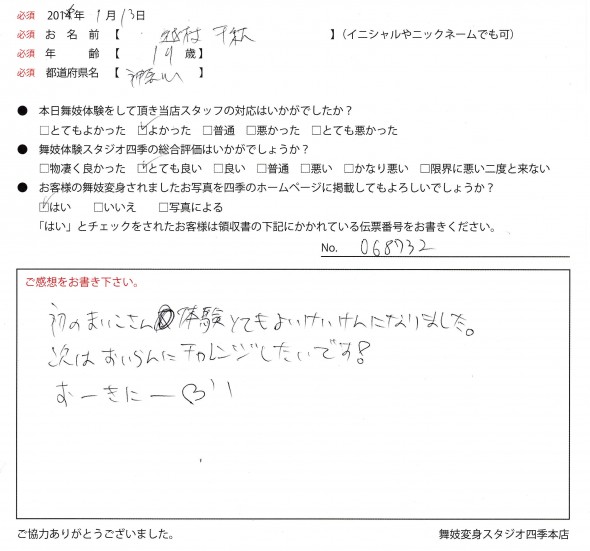 必須 201 年 1 月 13 日
必須 お 名 前 【 村 千秋 】(イニシャルやニックネームでも可)
必須 年 齢 【 19 歳】
必須 都道府県名 【 神奈川 】
● 本日舞妓体験をして頂き当店スタッフの対応はいかがでしたか?
□とてもよかった ☑よかった □普通 □悪かった □とても悪かった
● 舞妓体験スタジオ四季の総合評価はいかがでしょうか?
□物凄く良かった ☑とても良い □良い □普通 □悪い □かなり悪い □限界に悪い二度と来ない
● お客様の舞妓変身されましたお写真を四季のホームページに掲載してもよろしいでしょうか?
☑はい □いいえ □写真による
「はい」とチェックをされたお客様は領収書の下記にかかれている伝票番号をお書きください。
No. 068732
ご感想をお書き下さい。
初のまいこさん体験とてもよいけいけんになりました。
次はおいらんにチャレンジしたいです!
おーきにー♡''
ご協力ありがとうございました。
舞妓変身スタジオ四季本店